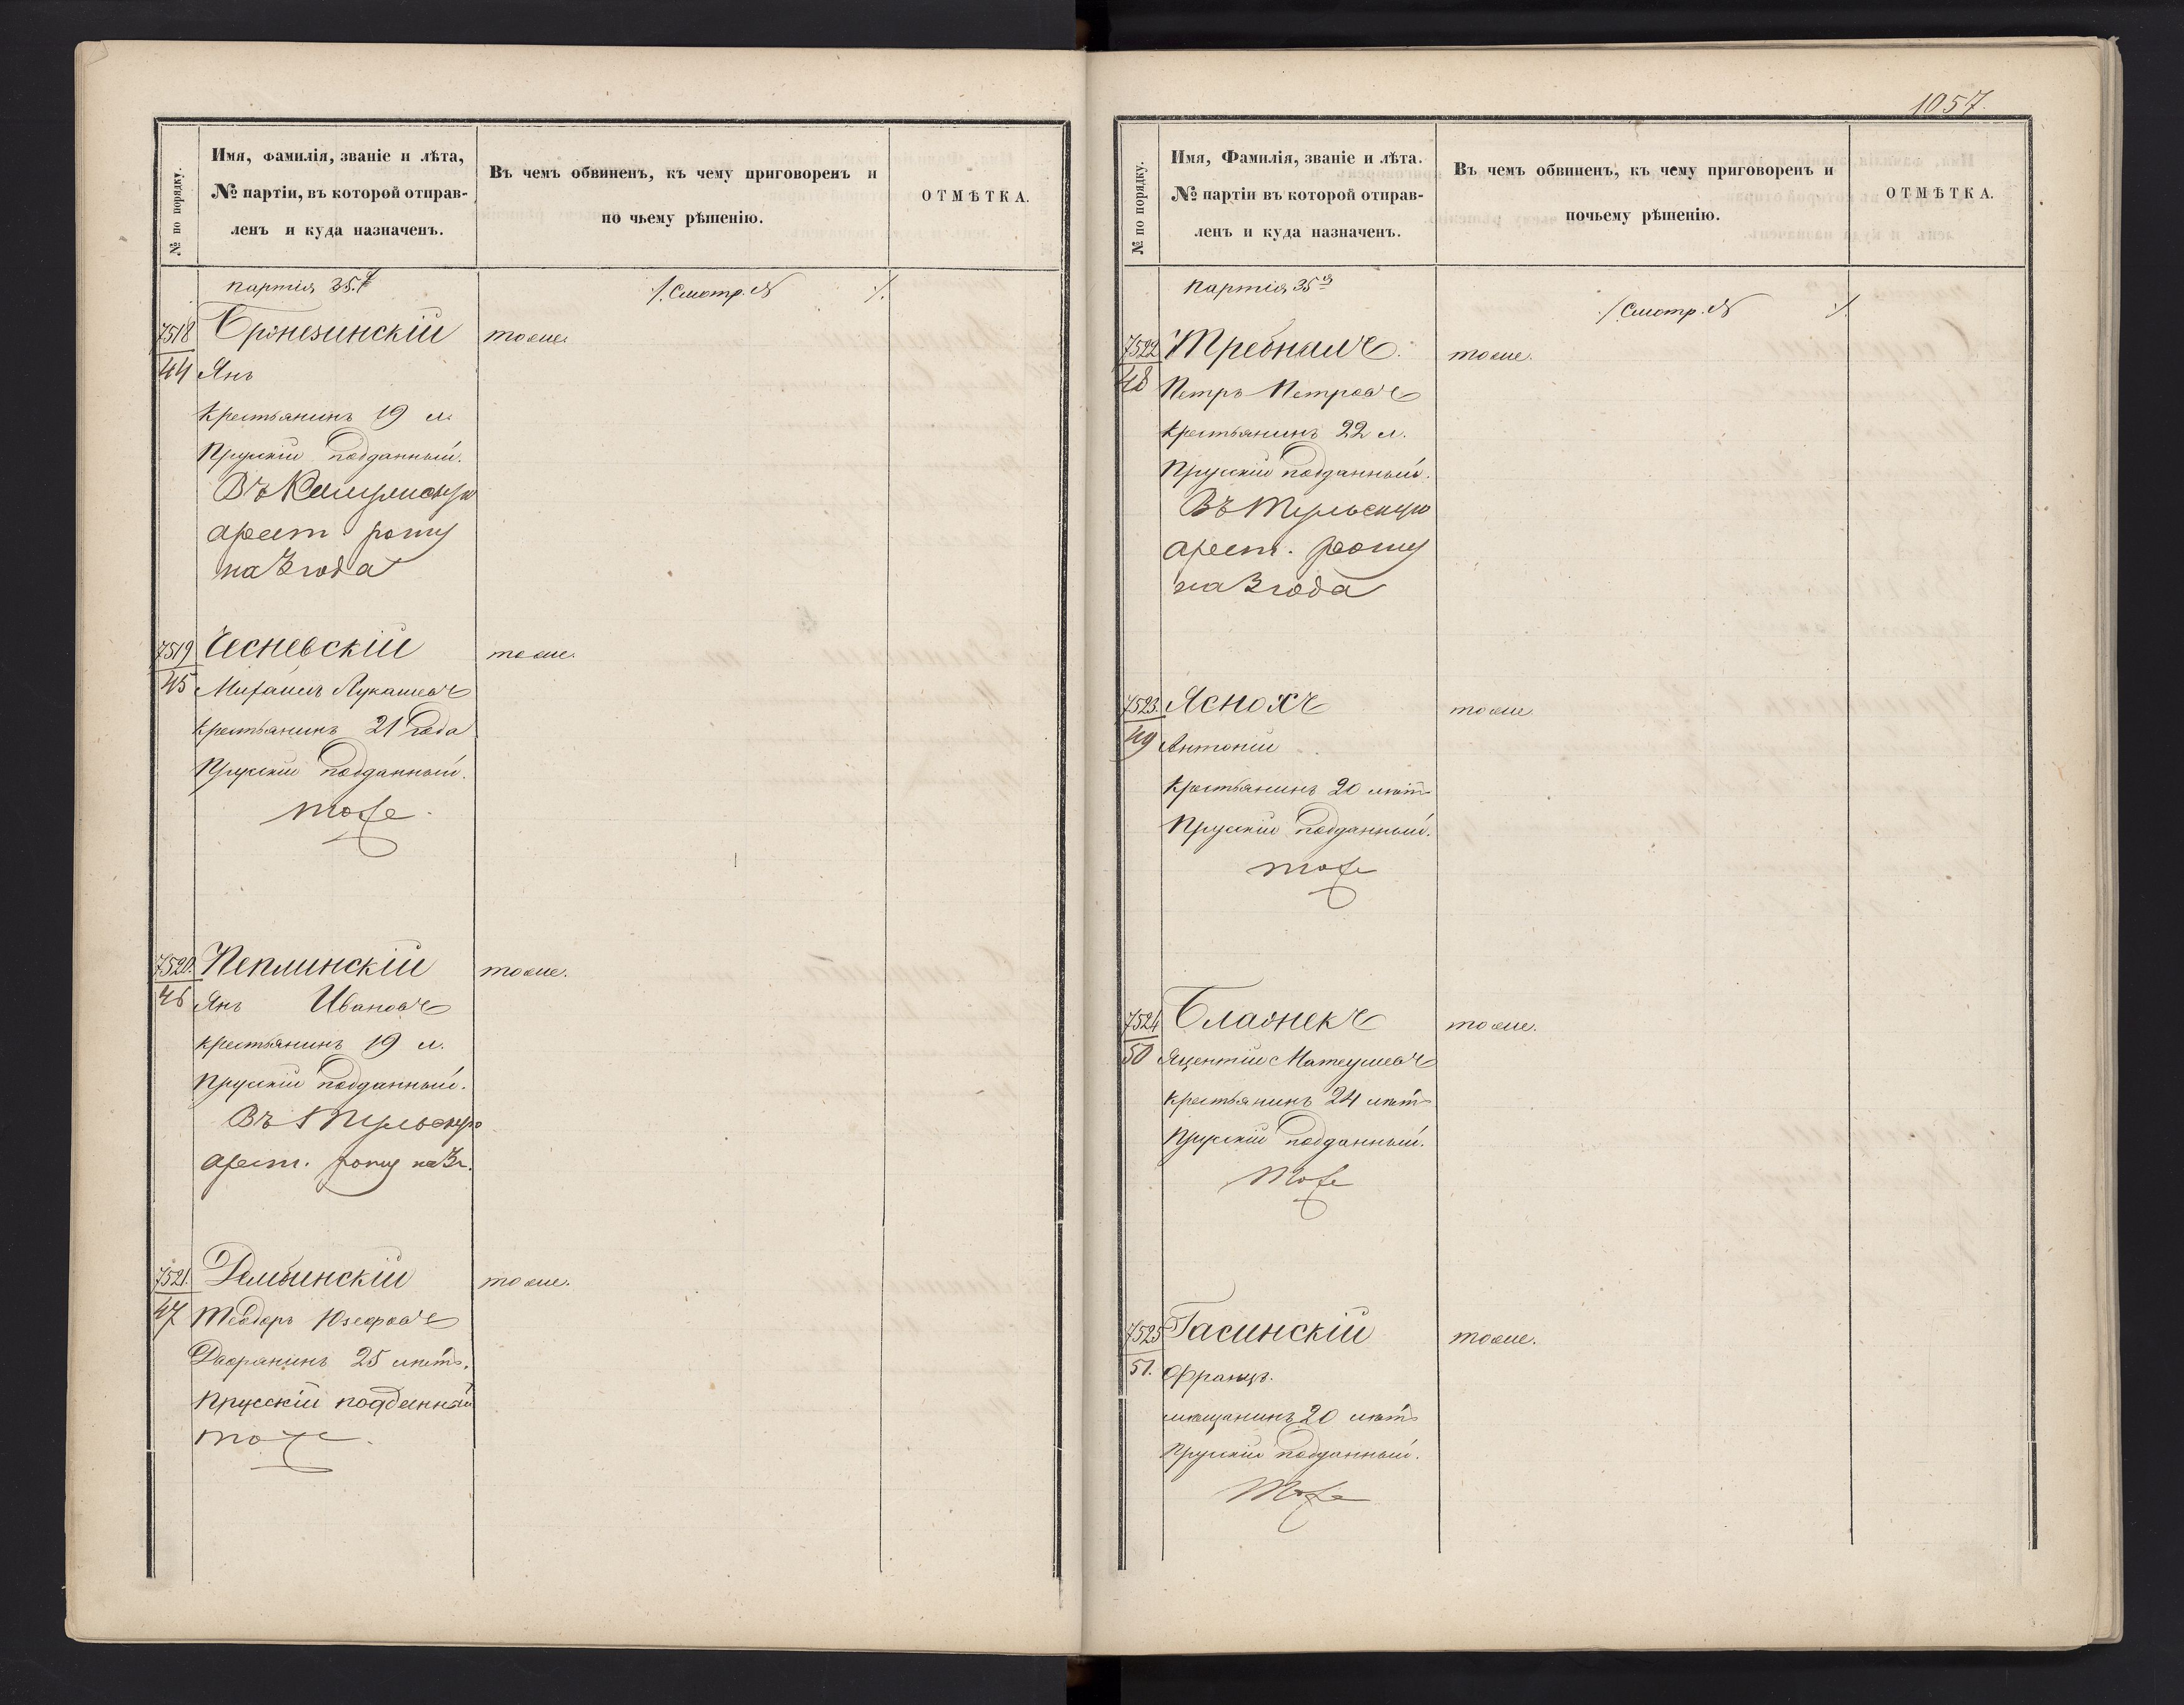 № по порядку.
Имя, фамилія, званіе и лѣта,
№ партіи, въ которой отправ-
ленъ и куда назначенъ.
Въ чемъ обвиненъ, къ чему приговоренъ и
по чьему рѣшенію.
ОТМѢТКА.
Партія 35.я
/. Смотр. №
/.
7518
44
Бронезинскій
тоже.
Янъ
Крестьянинъ 19 л.
Прускій подданный.
Въ
арест роту
на 3 года
7519
45
Чесневскій
тоже.
Михаилъ Лукашевъ
Крестьянинъ 21 года
Прускій подданный.
тоже.
7520.
46
Пеплинскій
тоже.
Янъ Ивановъ
крестьянинъ 19 л.
Прускій подданный.
Въ Тульскую
арест. роту на 3 г.
7521.
47
Дембинскій
тоже.
Теодоръ Юзефовъ
Дворянинъ 25 лѣтъ.
Прусскій подданный
тоже.
1057.
№ по порядку.
Имя, Фамилія, званіе и лѣта.
№ партіи въ которой отправ-
ленъ и куда назначенъ.
Въ чемъ обвиненъ, къ чему приговоренъ и
почьему рѣшенію.
ОТМѢТКА.
Партія 35я
/ Смотр. №
/.
7522
48
тоже.
Петръ Петровъ
Крестьянинъ 22 л.
Прускій подданный.
Въ Тульскую
арест. роту
на 3 года
7523.
49
Ясножъ
тоже.
Антоній
Крестьянинъ 20 лѣтъ
Прускій подданный.
тоже
7524
50
тоже.
Яцентій Матеушевъ
Крестьянинъ 24 лѣтъ
Прускій подданный.
Тоже
7525
51.
Гасинскій
тоже.
Францъ.
мѣщанинъ 20 лѣтъ
Прускій подданный.
Тоже